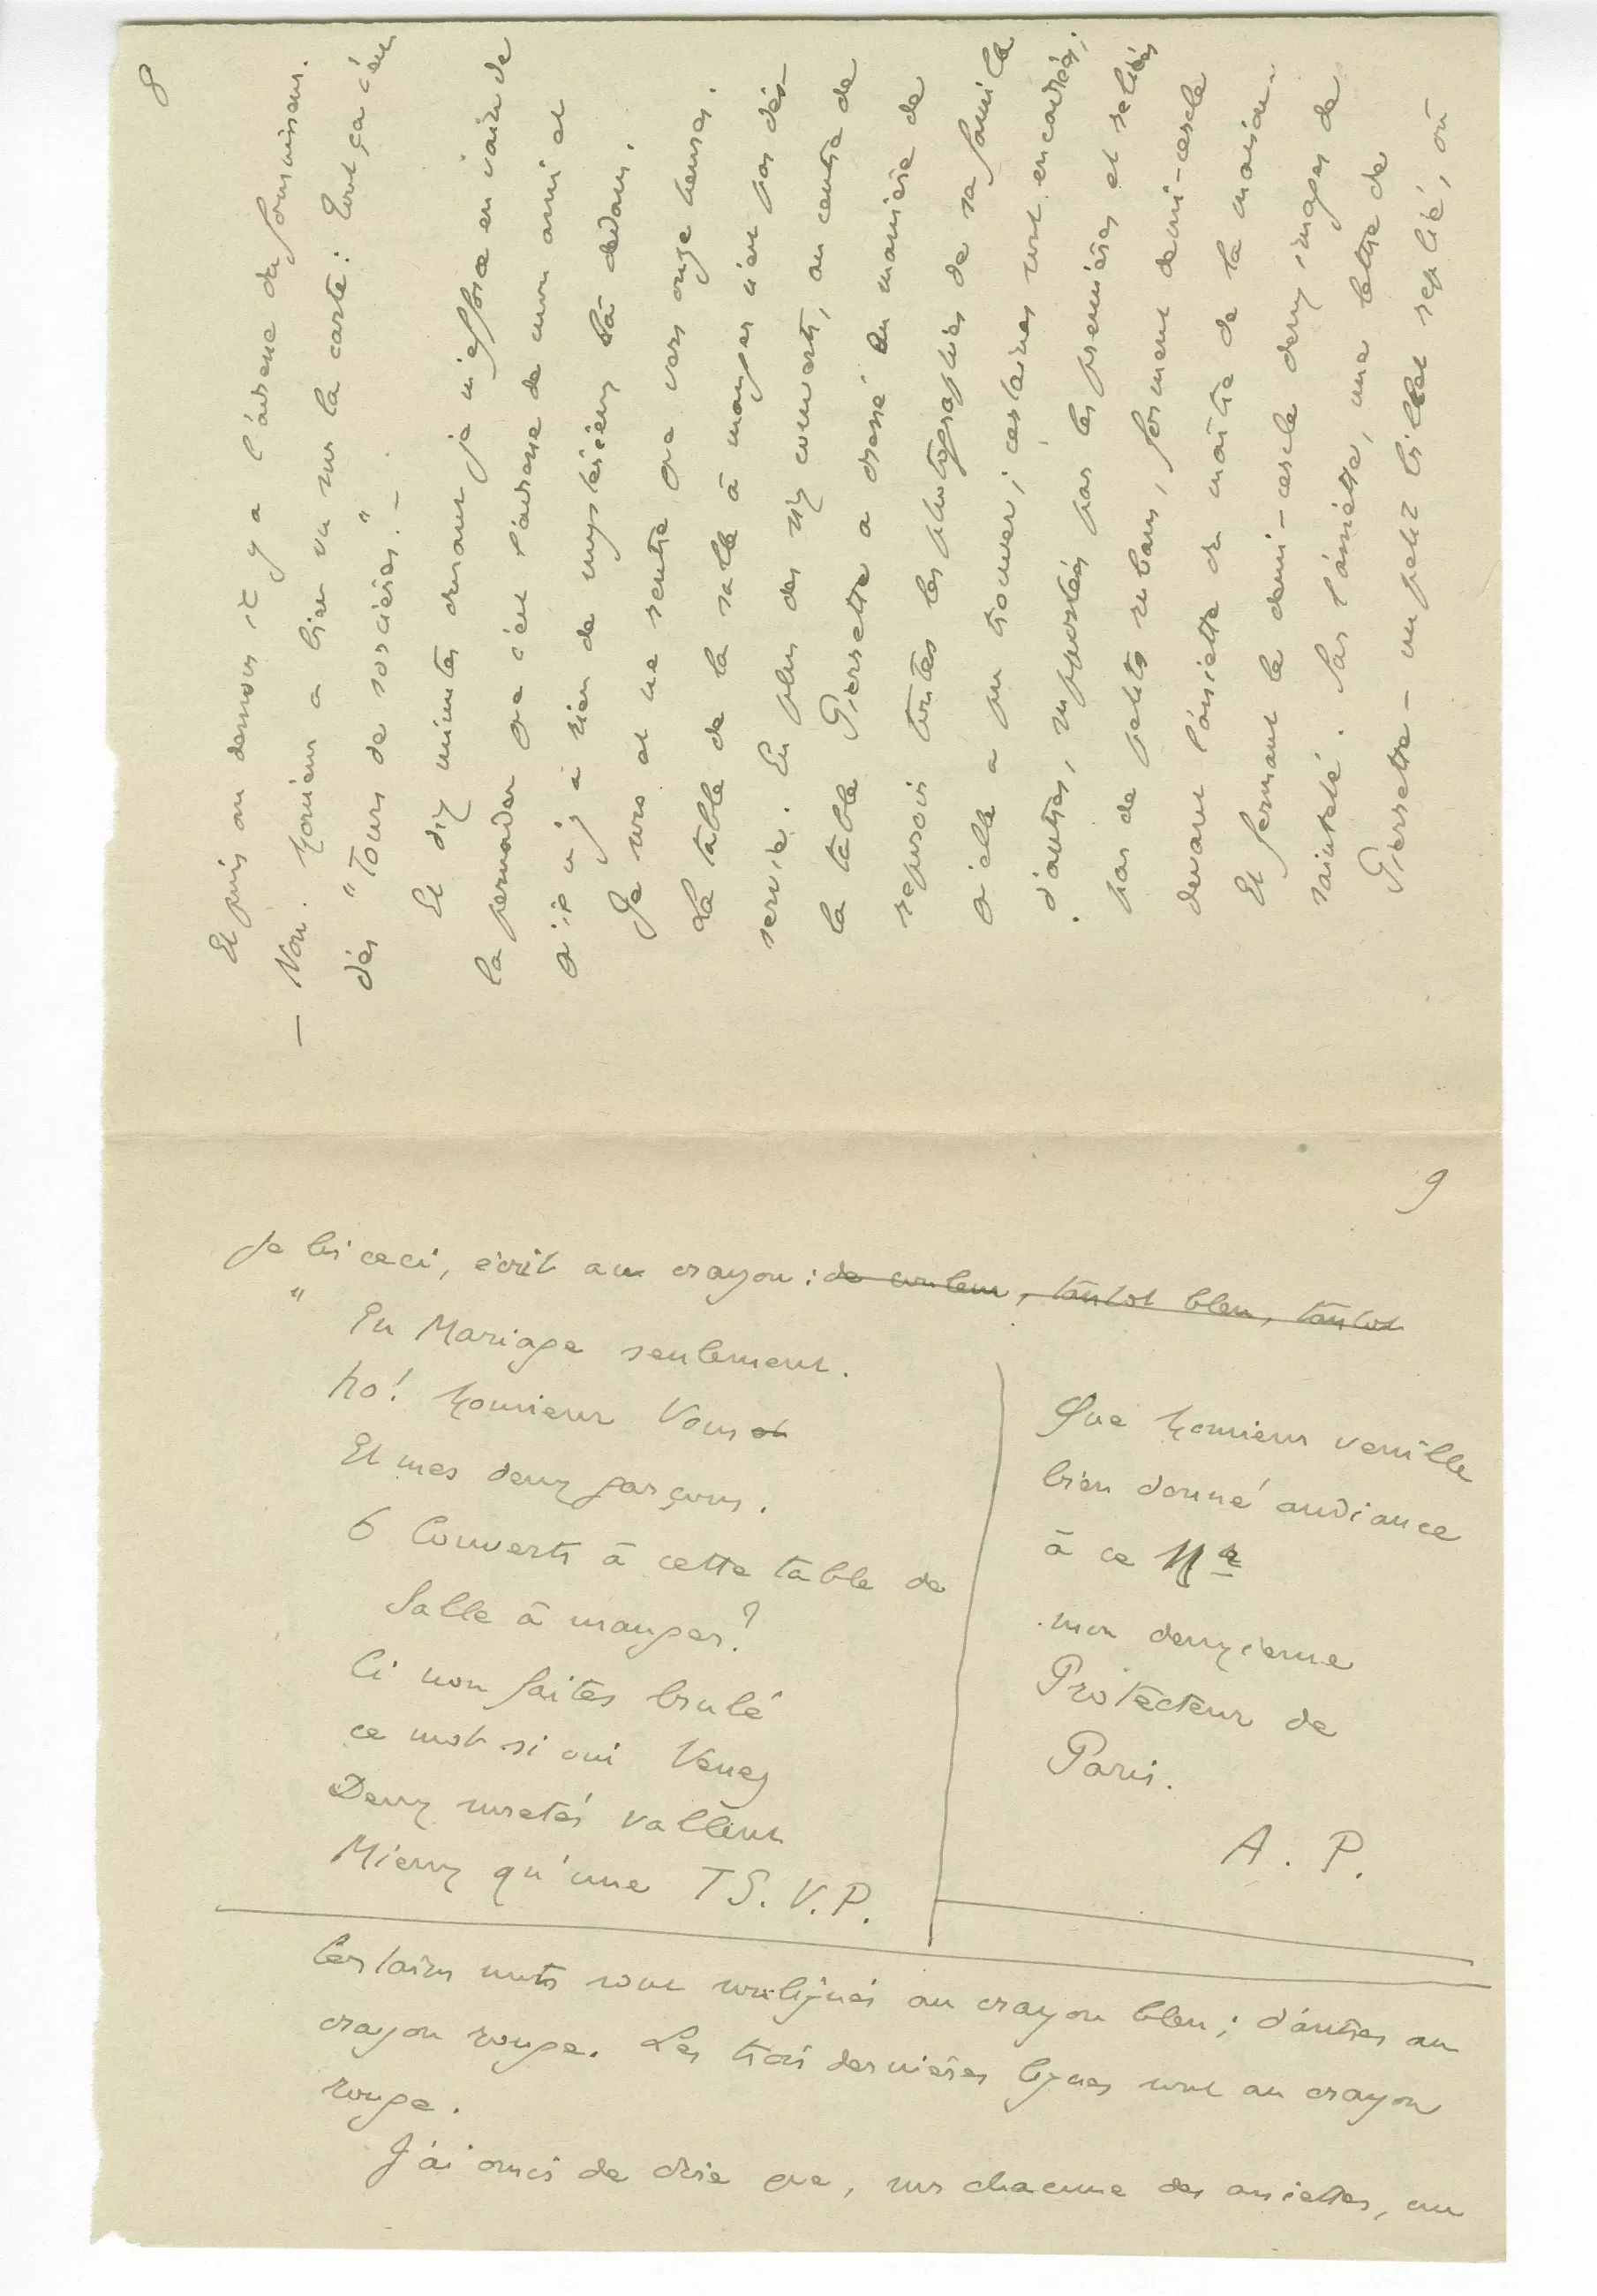 8
Et puis au dessus il y a l'adresse du fournisseur.
— Non. Monsieur a bien vu sur la carte : tout ça c'est
des "Tours de sorcières." —
Et dix minutes durant je m'efforce en vain de
la persuader que c'est l'adresse de mon ami et
qu'il n'y a rien de mystérieux là-dedans.
Je sors et ne rentre que vers onze heures.
La table de la salle à manger n'est pas des-
servie. En plus des six couverts, au centre de
la table Pierrette a dressé en manière de
reposoir toutes les photographies de sa famille
qu'elle a pu trouver ; certaines sont encadrées ;
d'autres, supportées par les premières et reliées
par de petits rubans, forment demi-cercle
devant l'assiette du maître de la maison.
Et fermant le demi-cercle deux images de
sainteté. Sur l'assiette, une lettre de
Pierrette — un petit billet replié, où
9
Je lis ceci, écrit au crayon : de couleur, tantot bleu, tantot
" En Mariage seulement.
ho! Monsieur Vous ou
Et mes deux garçons.
6 Couverts à cette table de
Salle à manger?
Ci non faites brulé
ce mot si oui Venez
Deux suretés vallent
Mieux qu'une T S. V. P.
Que Monsieur veuille
bien donné audiance
à ce Mr
mon deuxieme
Protecteur de
Paris.
A. P.
Certains mots sont soulignés au crayon bleu ; d'autres au
crayon rouge. Les trois dernières lignes sont au crayon
rouge.
J'ai omis de dire que, sur chacune des assiettes, au